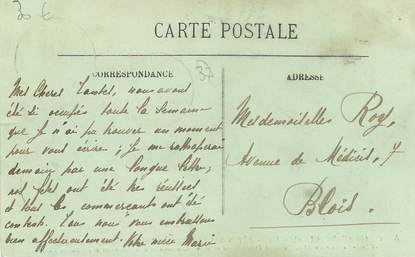 30 €
CARTE POSTALE
CORRESPONDANCE
37
ADRESSE
Mes Cheres Tantes, nous avons
été si occupés toute la semaine
que je n'ai pu trouver un moment
pour vous écrire; je me rattraperai
demain par une longue lettre;
nos fêtes ont été très réussies
et tous les commerçants ont été
contents. Tous nous vous embrassons
bien affectueusement. Votre nièce Marie
Mesdemoiselles Roy,
Avenue de Médicis, 7
Blois.